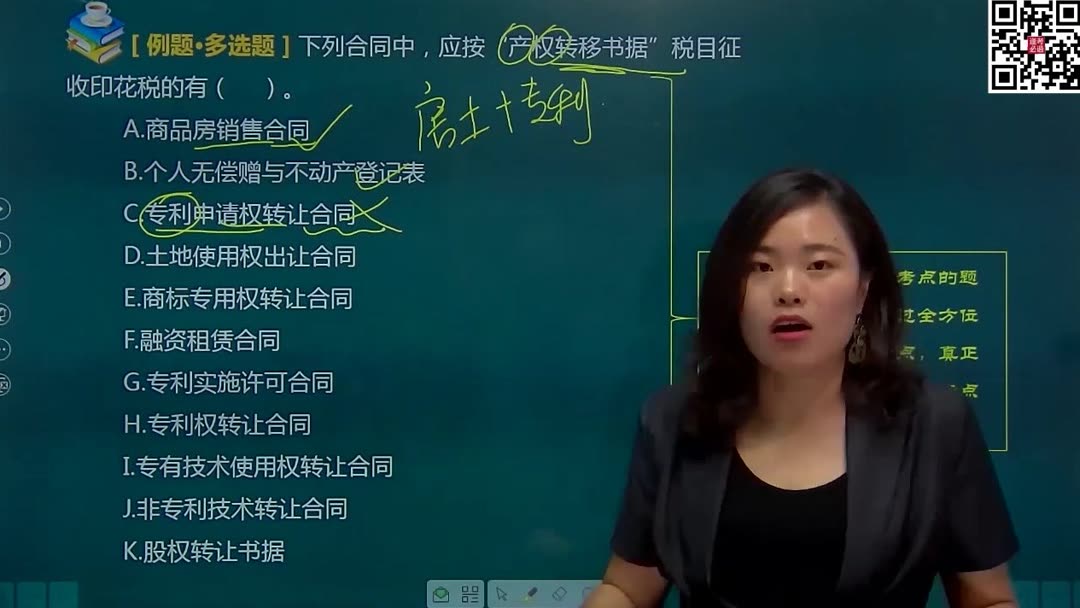 [ 例题·多选题 ] 下列合同中，应按“产权转移书据”税目征
收印花税的有（ ）。
房土+专利
A.商品房销售合同
B.个人无偿赠与不动产登记表
C.专利申请权转让合同
D.土地使用权出让合同
E.商标专用权转让合同
F.融资租赁合同
G.专利实施许可合同
H.专利权转让合同
I.专有技术使用权转让合同
J.非专利技术转让合同
K.股权转让书据
考点的题
过全方位
点，真正
点